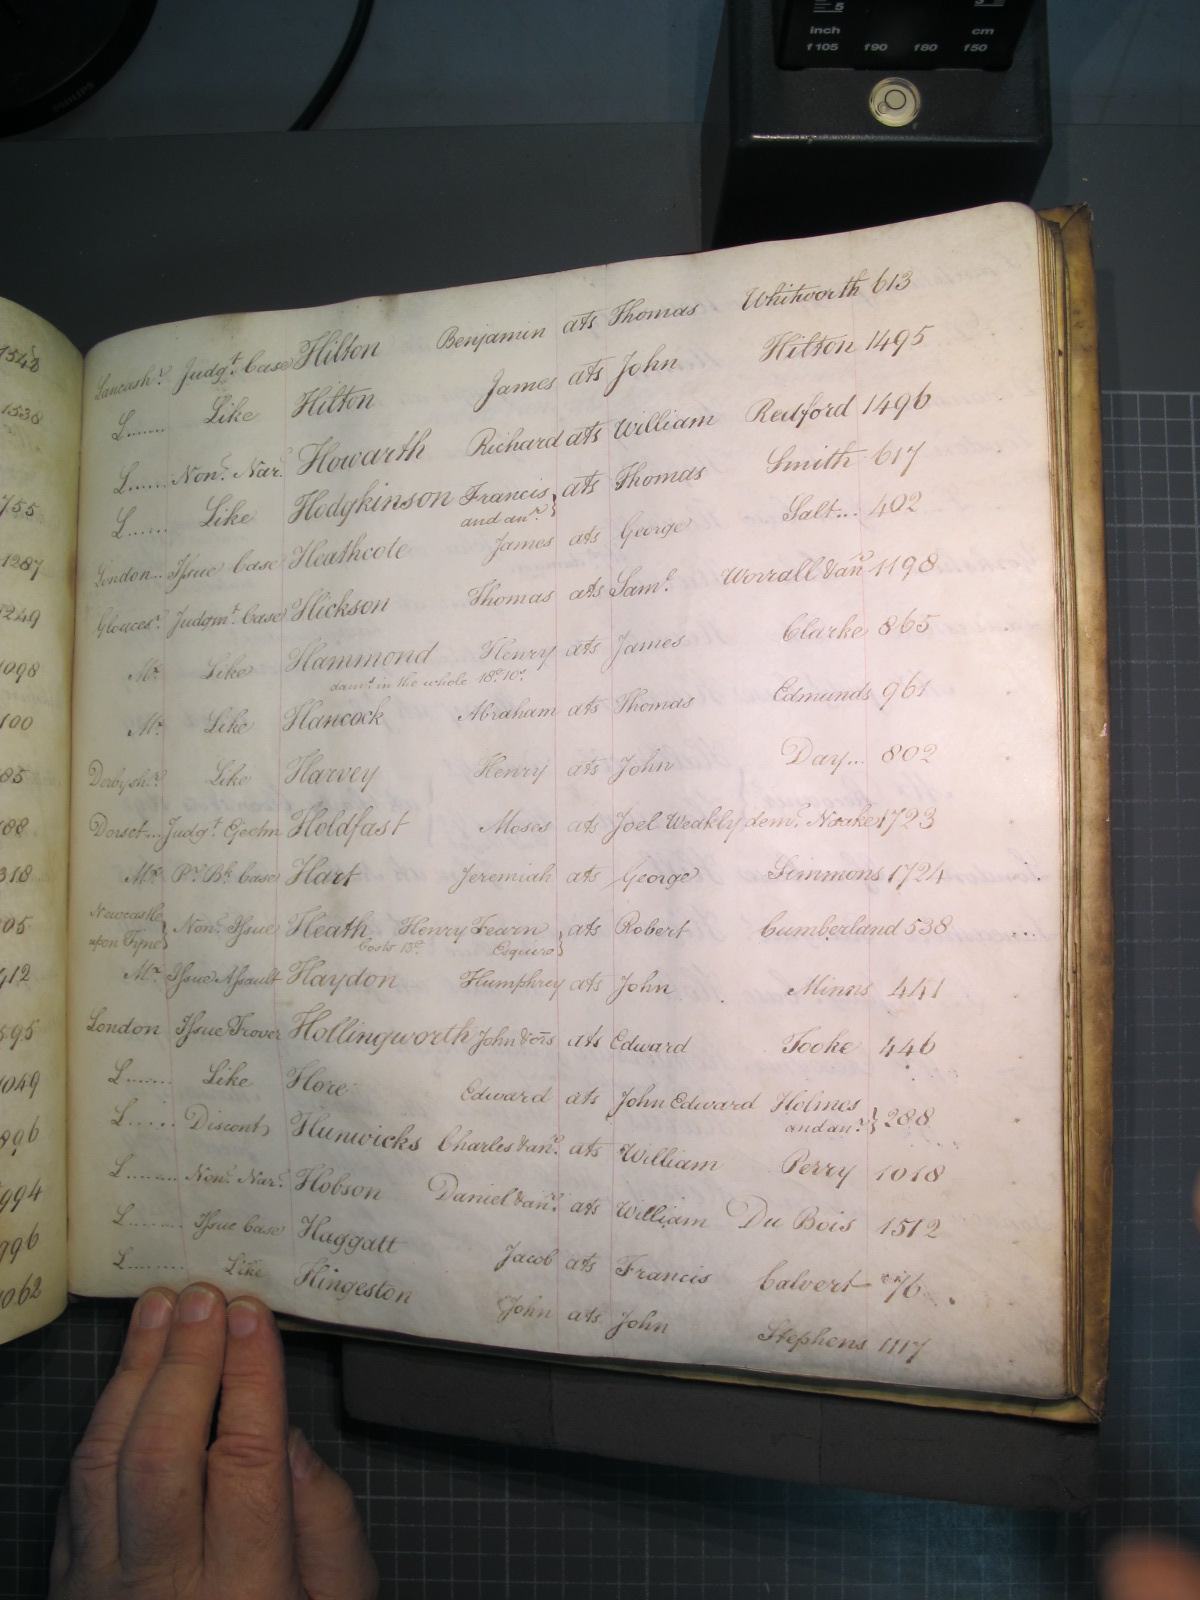 5
inch cm
f105 f90 f80 f50
PHILIPS
Lancash.r Judg.t Case Hilton Benjamin ats Thomas Whitworth 613
L...... Like Hilton James ats John Hilton 1495
L...... Non. Nar. Howarth Richard ats William Redford 1496
L...... Like Hodgkinson Francis and an.r } ats Thomas Smith 617
London... Issue Case Heathcote James ats George Salt... 402
Glouces.r Judgm.t Case Hickson Thomas ats Sam.l Worrall & an.r 1198
M.x Like Hammond Henry ats James Clarke 865
dam.s in the whole 18.s 10.d
M.x Like Hancock Abraham ats Thomas Edmunds 961
Derbysh.r Like Harvey Henry ats John Day... 802
Dorset... Judg.t Ejectm Holdfast Moses ats Joel Weakly dem. Noake 1723
M.x P. Bk. Case Hart Jeremiah ats George Simmons 1724
Newcastle upon Tyne } Non. Issue Heath Henry Fearn Esquire } ats Robert Cumberland 538
Costs 13
M.x Issue Assault Haydon Humphrey ats John Minns 441
London Issue Trover Hollingworth John & ors ats Edward Tooke 446
L...... Like Hore Edward ats John Edward Holmes and an.r } 288
L...... Discont Hunwicks Charles & an.r ats William Perry 1018
L...... Non. Nar. Hobson Daniel & an.r ats William Du Bois 1512
L...... Issue Case Huggatt Jacob ats Francis Calvert 76
L...... Like Hingeston John ats John Stephens 1117
1543
1538
755
1287
1249
1098
100
85
188
318
05
412
595
1049
896
994
996
1062